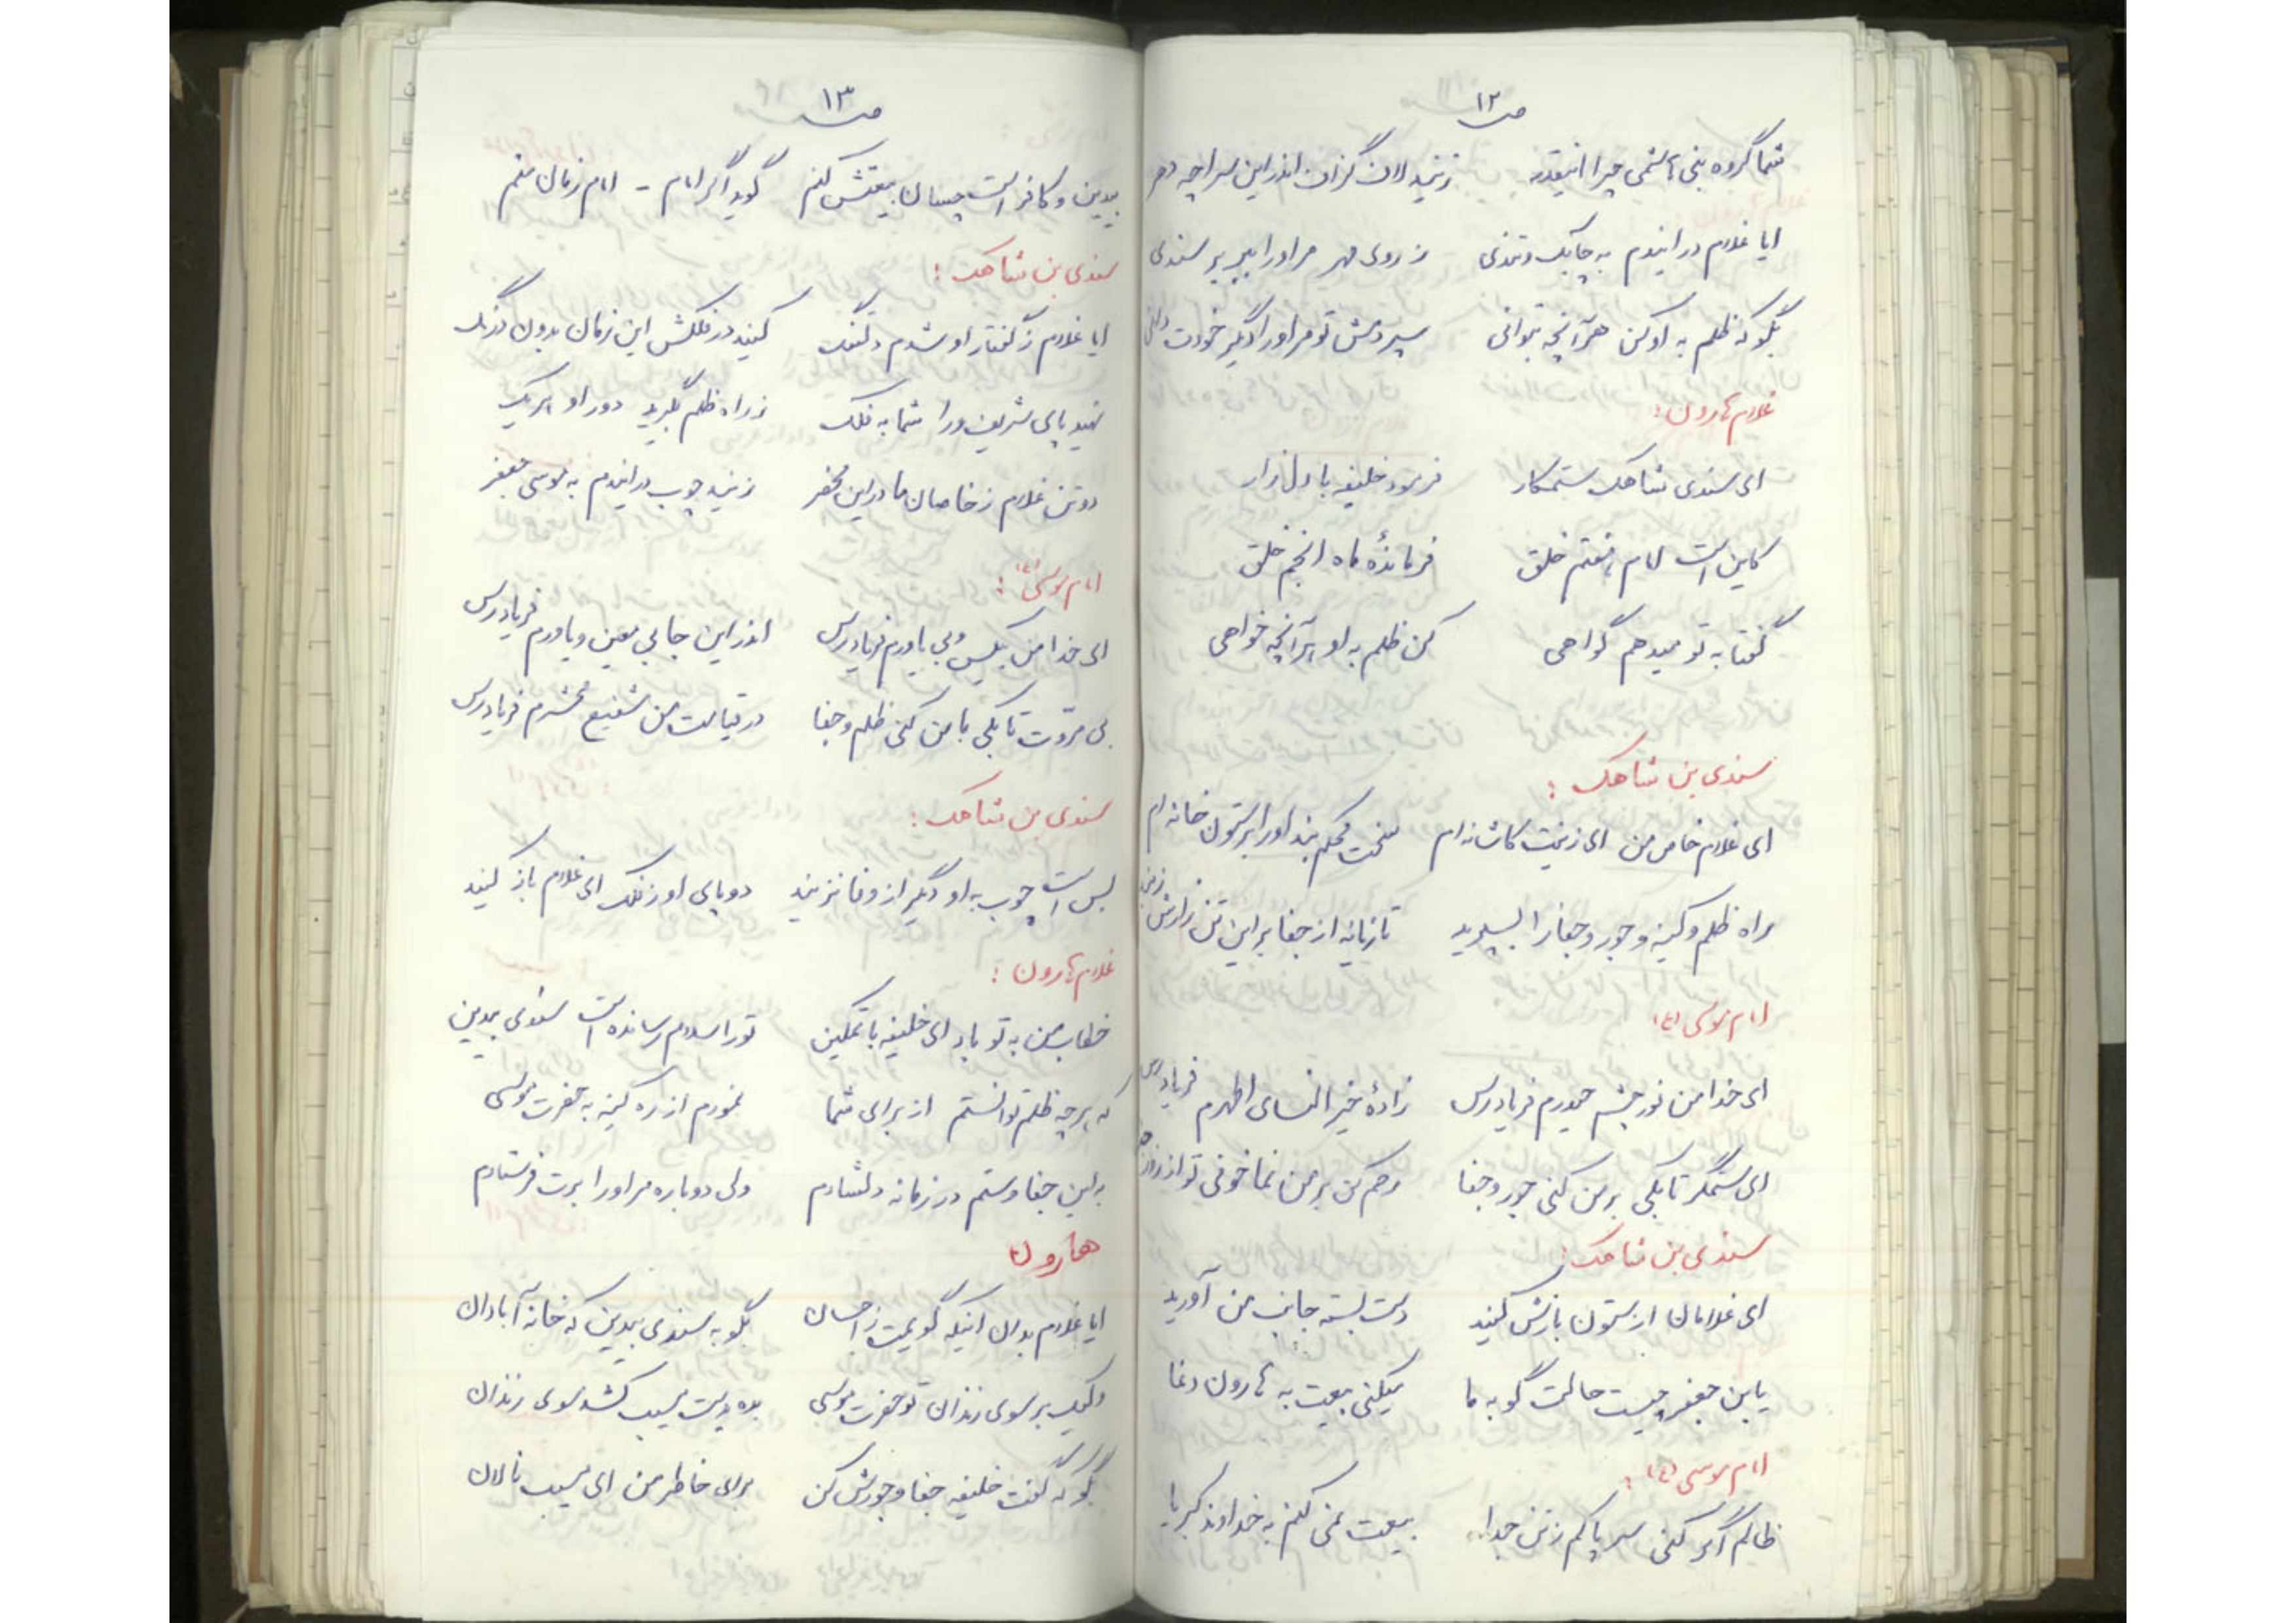 ص ۱۲
شما گروه بنی هاشمی چرا اینقدر زنید لاف گزاف اندر این سراچه دهر
ایا غلام در ایندم به چابک و تندی ز روی مهر مر او را ببر بر سندی
بگو که ظلم به او کن هر آنچه بتوانی سپردمش تو مر او را دگر خودت دانی
غلام هارون:
ای سندی شاهک ستمکار فرمود خلیفه با دل زار
کاین است امام هفتم خلق فرمانده ماه انجم خلق
گفتا به تو میدهم گواهی کن ظلم به او هر آنچه خواهی
سندی بن شاهک:
ای غلام خاص من ای زینت کاشانه ام سخت محکم بند او را بر ستون خانه ام
راه ظلم و کینه و جور و جفا را بسپرید تازیانه از جفا بر این تن زارش زنید
امام موسی (ع)
ای خدا من نور چشم حیدرم فریادرس زادهٔ خیر النسای اطهرم فریادرس
ای ستمگر تا بکی بر من کنی جور و جفا رحم کن بر من نما خوفی تو از روز
سندی بن شاهک:
ای غلامان از ستون بازش کنید دست بسته جانب من آورید
یابن جعفر چیست حالت گو به ما میکنی بیعت به هارون دغا
امام موسی (ع):
ظالم اگر کنی سر پاکم ز تن جدا بیعت نمی کنم به خداوند کبریا
ص ۱۳
بیدین و کافر است چسان بیعتش کنم گوید اگر امام - امام زمان منم
سندی بن شاهک:
ایا غلام ز گفتار او شدم دلتنگ کنید در فلکش این زمان بدون درنگ
نهید پای شریف ورا شما به فلک ز راه ظلم بگیرید دور او هر یک
دو تن غلام ز خاصان ما در این محضر زنید چوب در ایندم به موسی جعفر
امام موسی (ع):
ای خدا من بیکس و بی یاورم فریادرس اندر این جا بی معین و یاورم فریادرس
بی مروت تا بکی با من کنی ظلم و جفا در قیامت من شفیع محشرم فریادرس
سندی بن شاهک:
بس است چوب به او دیگر از وفا نزنید دو پای او ز فلک ای غلام باز کنید
غلام هارون:
خطاب من به تو باد ای خلیفه با تمکین تو را سلام رسانده است سندی بیدین
که هر چه ظلم توانستم از برای شما نمودم از ره کینه به حضرت موسی
به این جفا و ستم در زمانه دلشادم ولی دوباره مر او را برت فرستادم
هارون
ایا غلام بدان اینکه گویمت ز احسان بگو به سندی بیدین که خانه آبادان
ولیک بر سوی زندان تو حضرت موسی بده بدست مسیب کشد سوی زندان
بگو که گفت خلیفه جفا و جورش کن برای خاطر من ای مسیب نالان